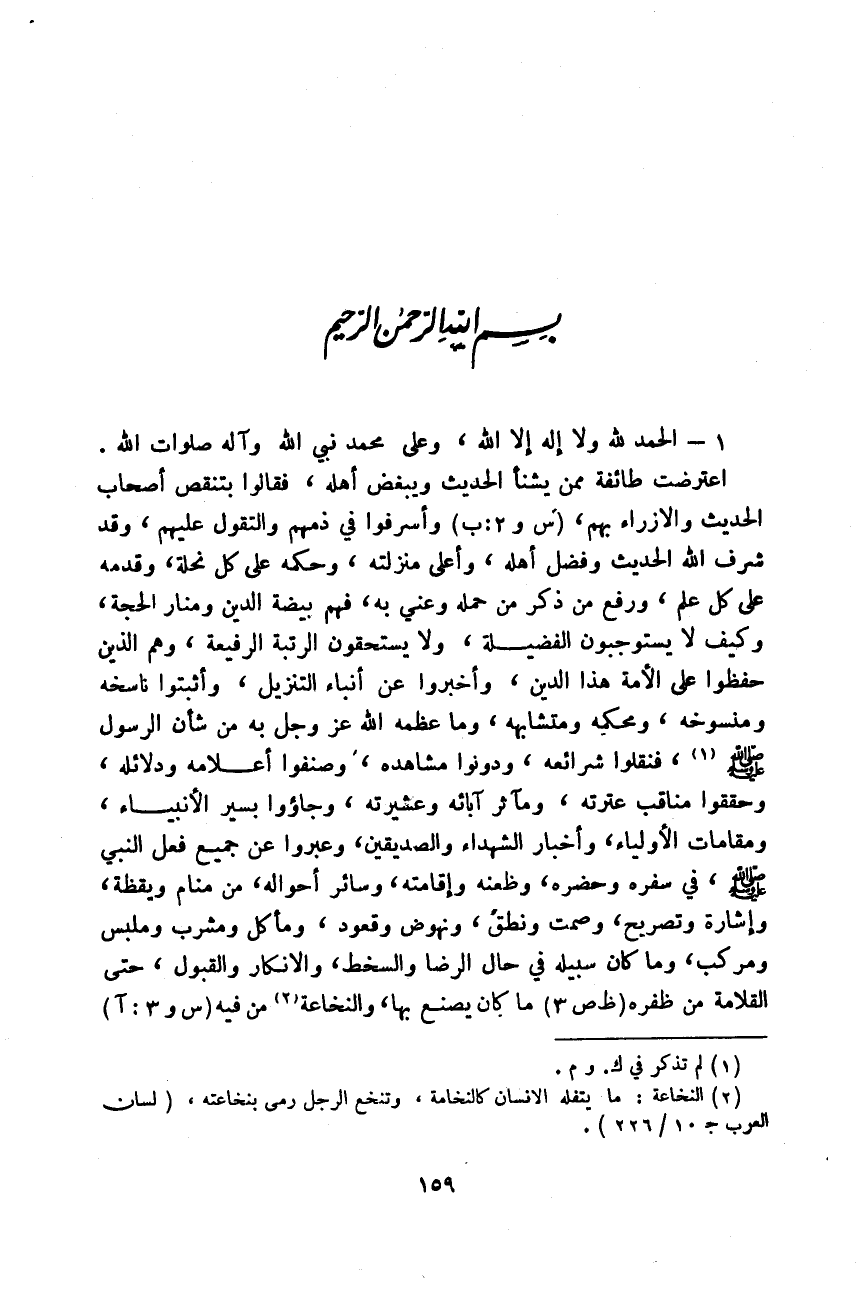 بسم الله الرحمن الرحيم
١ – الحمد لله ولا إله إلا الله ، وعلى محمد نبي الله وآله صلوات الله .
اعترضت طائفة ممن يشنأ الحديث ويبغض أهله ، فقالوا بتنقص أصحاب
الحديث والازراء بهم، (س و ٢:ب) وأسرفوا في ذمهم والتقول عليهم ، وقد
شرف الله الحديث وفضل أهله ، وأعلى منزلته ، وحكمه على كل نحلة، وقدمه
على كل علم ، ورفع من ذكر من حمله وعني به، فهم بيضة الدين ومنار الحجة،
وكيف لا يستوجبون الفضيـــلة ، ولا يستحقون الرتبة الرفيعة ، وهم الذين
حفظوا على الأمة هذا الدين ، وأخبروا عن أنباء التنزيل ، وأثبتوا ناسخه
ومنسوخه ، ومحكمه ومتشابهه ، وما عظمه الله عز وجل به من شأن الرسول
ﷺ (١) ، فنقلوا شرائعه ، ودونوا مشاهده ، وصنفوا أعـــلامه ودلائله ،
وحققوا مناقب عترته ، ومآثر آبائه وعشيرته ، وجاؤوا بسير الأنبيـــاء ،
ومقامات الأولياء، وأخبار الشهداء والصديقين، وعبروا عن جميع فعل النبي
ﷺ ، في سفره وحضره، وظعنه وإقامته، وسائر أحواله، من منام ويقظة،
وإشارة وتصريح، وصمت ونطق، ونهوض وقعود ، ومأكل ومشرب وملبس
ومركب، وما كان سبيله في حال الرضا والسخط، والانكار والقبول ، حتى
القلامة من ظفره (ظ ص ٣) ما كان يصنع بها، والنخاعة(٢) من فيه (س و ٣ : آ)
(١) لم تذكر في ك. و م .
(٢) النخاعة : ما يتفله الانسان كالنخامة ، وتنخع الرجل رمى بنخاعته ، ( لسان
العرب جـ ١٠ / ٢٢٦ ) .
١٥٩